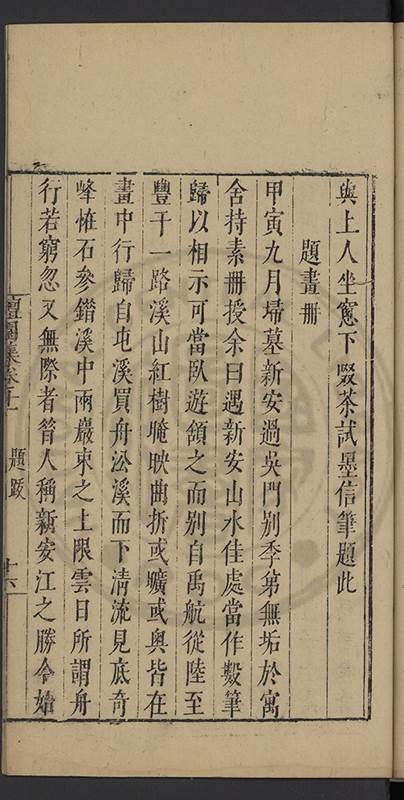 與上人坐窻下啜茶試墨信筆題此
題畫冊
甲寅九月埽墓新安過吳門別季第無垢於寓
舍持素冊授余曰遇新安山水佳處當作數筆
歸以相示可當臥遊頷之而别自禹航從陸至
豐干一路溪山紅樹晻映曲折或曠或奥皆在
畫中行歸自屯溪買舟㳂溪而下清流見底奇
峰恠石參錯溪中兩巖束之上限雲日所謂舟
行若窮忽又無際者昝人稱新安江之勝今始
檀園集卷十一
題跋
十六